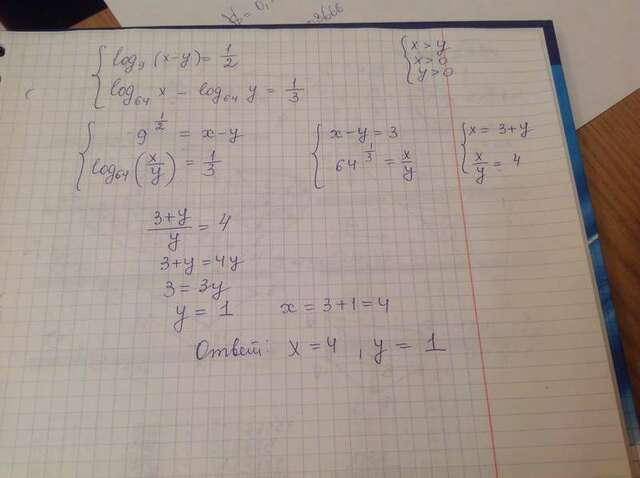 log₉(x-y) = 1/2
log₆₄ x - log₆₄ y = 1/3
x > y
x > 0
y > 0
9^(1/2) = x-y
log₆₄(x/y) = 1/3
x-y = 3
64^(1/3) = x/y
x = 3+y
x/y = 4
(3+y)/y = 4
3+y = 4y
3 = 3y
y = 1 x = 3+1 = 4
Ответ: x = 4, y = 1